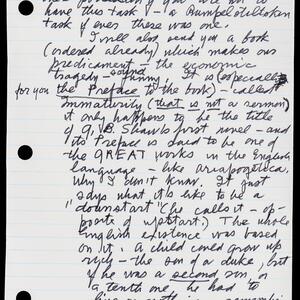 have this task – a Bumpelstiltsken
task if ever there was one.
I will also send you a book
(ordered already) which makes our
predicament – the economic
tragedy – sound funny. It is (especially
for you the Preface to the book) – called
Immaturity (that is not a sermon)
it only happens to be the title
of G. B. Shaw's first novel – and
its Preface is said to be one of
the GREAT works in the English
language – like
Why I don't know. It just
says what it's like to be a
"downstart" (he calls it – op-
posite of upstart). The whole
English existence was based
on it. A child could grow up
– the son of a duke, but
if he was a second son, or
a tenth one, he had to